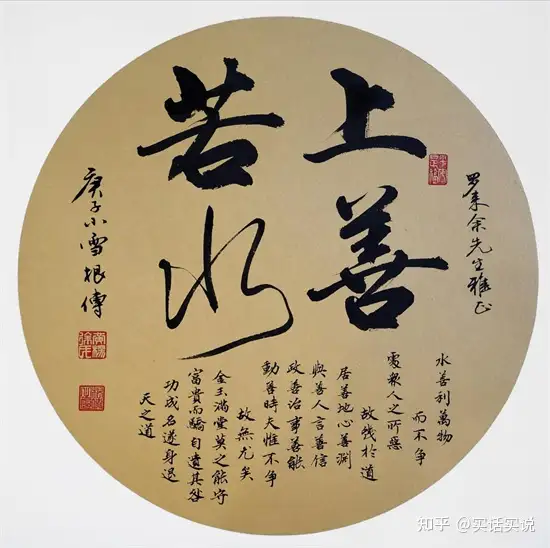 罗来余先生雅正
上善
若水
水善利萬物
而不争
處衆人之所惡
故幾於道
居善地心善淵
與善人言善信
政善治事善能
動善時夫惟不争
故無尤矣
金玉滿堂莫之能守
富貴而驕自遺其咎
功成名遂身退
天之道
庚子小雪根傳
知乎 @实话实说